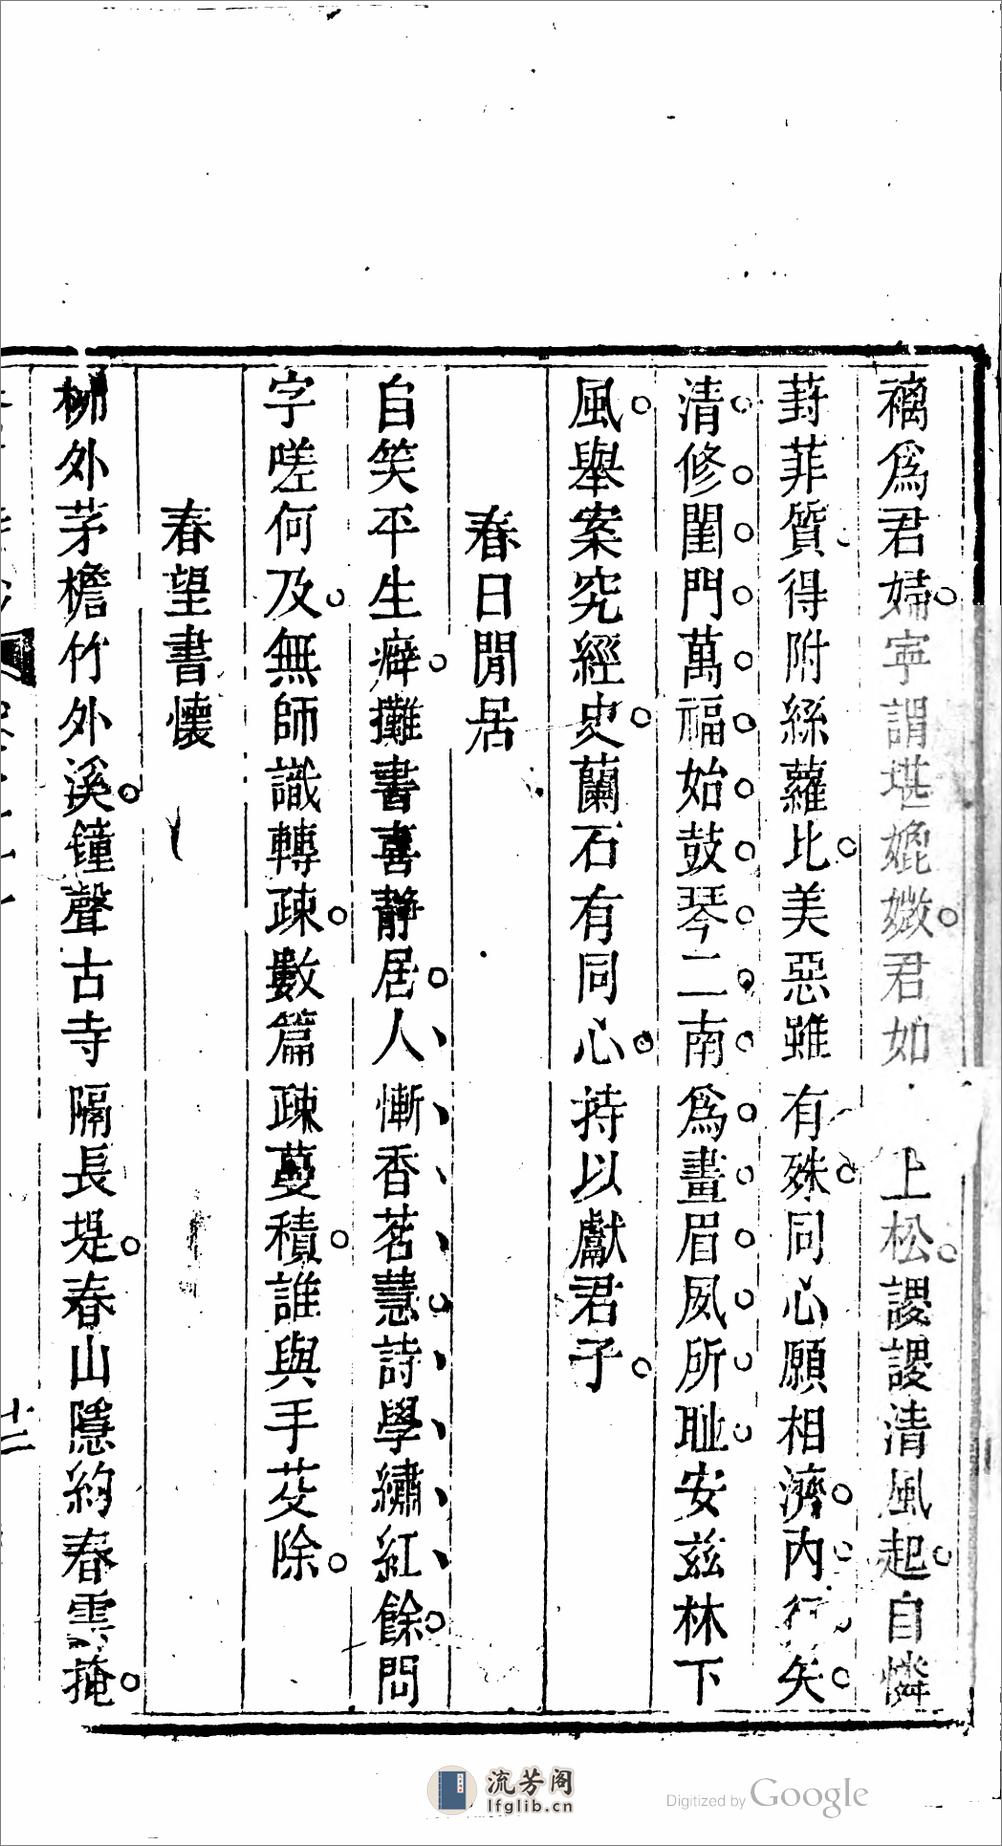 褵為君婦寧謂堪媲媺君如上松謖謖清風起自憐
葑菲質得附絲蘿比美惡雖有殊同心願相濟內行矢
清修閨門萬福始鼓琴二南為畫眉夙所恥安茲林下
風舉案究經史蘭石有同心持以獻君子
春日閒居
自笑平生癖攤書喜靜居人慚香茗慧詩學繡紅餘問
字嗟何及無師識轉疎數篇疎蔓積誰與手芟除
春望書懷
柳外茅檐竹外溪鐘聲古寺隔長堤春山隱約春雲掩
十二
流芳阁
lfglib.cn
Digitized by Google